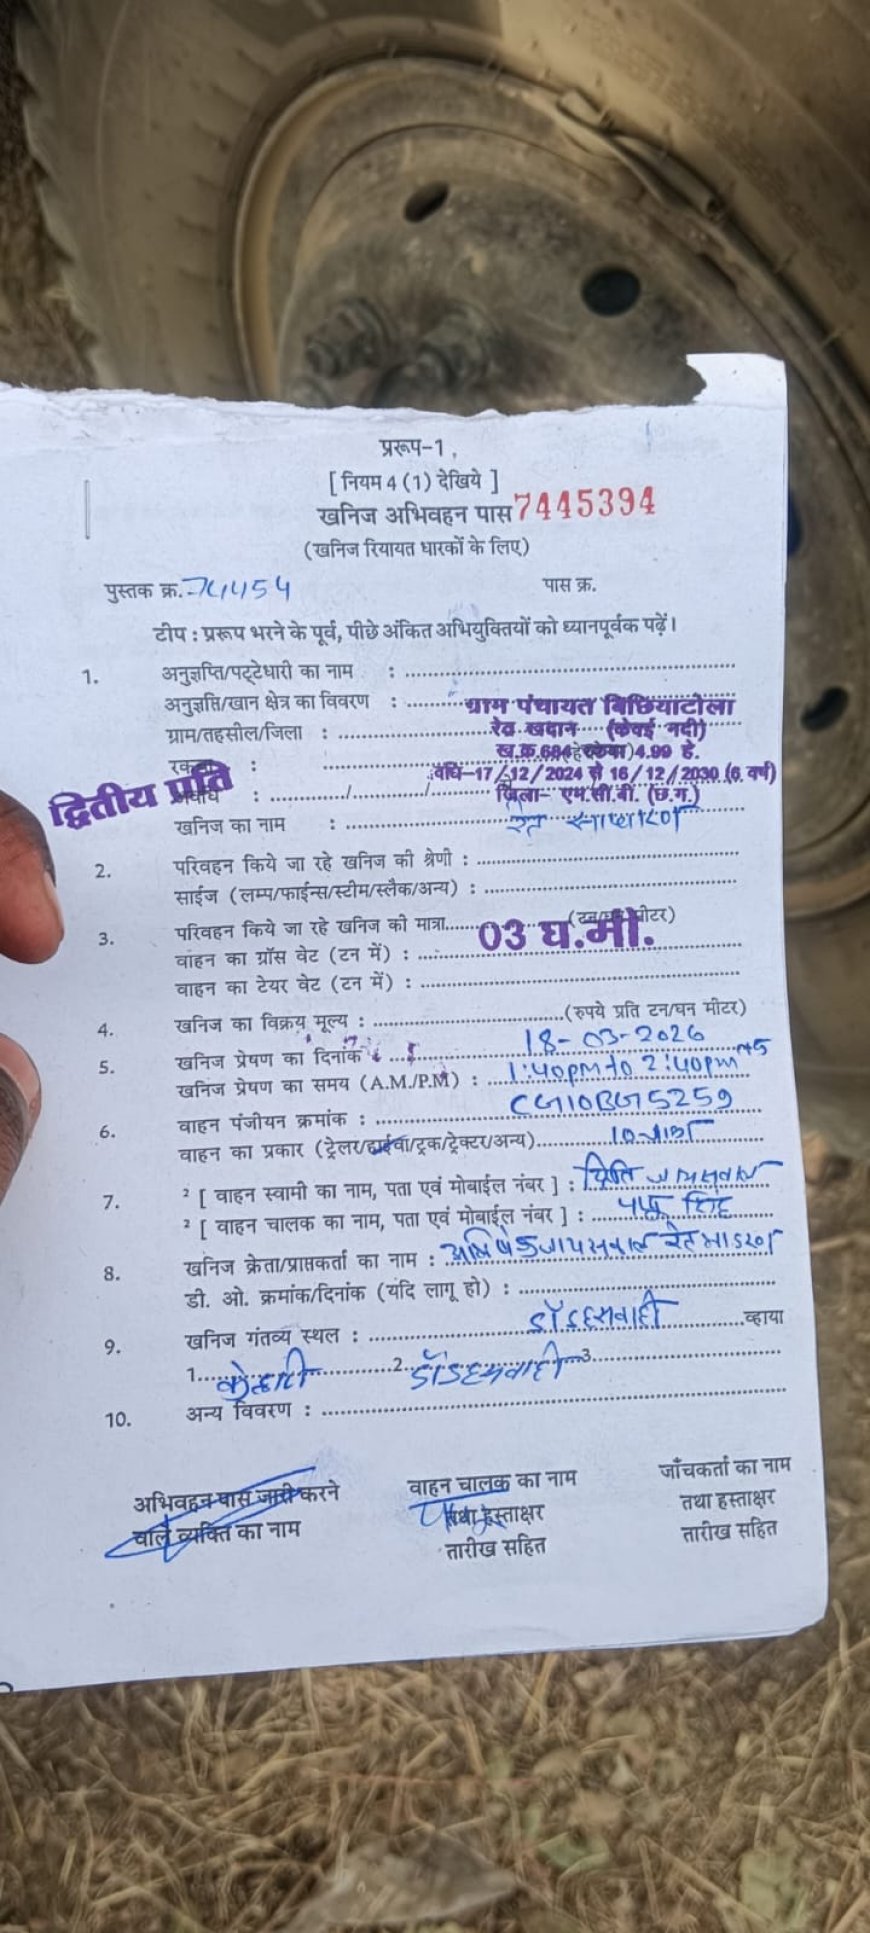 प्ररूप-1
[ नियम 4 (1) देखिये ]
खनिज अभिवहन पास 7445394
(खनिज रियायत धारकों के लिए)
पुस्तक क्र. 74454 पास क्र.
टीप : प्ररूप भरने के पूर्व, पीछे अंकित अभियुक्तियों को ध्यानपूर्वक पढ़ें।
1. अनुज्ञप्ति/पट्टेधारी का नाम :
अनुज्ञप्ति/खान क्षेत्र का विवरण : ग्राम पंचायत बिछियाटोला
ग्राम/तहसील/जिला : रेत खदान (केवई नदी)
: ख.क्र.684 4.99 हे.
द्वितीय प्रति
वधि-17/12/2024 से 16/12/2030 (6 वर्ष)
जिला- एम.सी.बी. (छ.ग.)
खनिज का नाम : रेत साधारण
2. परिवहन किये जा रहे खनिज की श्रेणी :
साईज (लम्प/फाईन्स/स्टीम/स्लैक/अन्य) :
3. परिवहन किये जा रहे खनिज की मात्रा 03 घ.मी.
वाहन का ग्रॉस वेट (टन में) :
वाहन का टेयर वेट (टन में) :
4. खनिज का विक्रय मूल्य : (रुपये प्रति टन/घन मीटर)
5. खनिज प्रेषण का दिनांक : 18-03-2026
खनिज प्रेषण का समय (A.M./P.M) : 1:40pm to 2:40pm
6. वाहन पंजीयन क्रमांक : CG10BG5259
वाहन का प्रकार (ट्रेलर/हाईवा/ट्रक/ट्रेक्टर/अन्य)
7. ² [ वाहन स्वामी का नाम, पता एवं मोबाईल नंबर ] : जायसवाल
² [ वाहन चालक का नाम, पता एवं मोबाईल नंबर ] : सिंह
8. खनिज क्रेता/प्राप्तकर्ता का नाम : अभिषेक जायसवाल
डी. ओ. क्रमांक/दिनांक (यदि लागू हो) :
9. खनिज गंतव्य स्थल : डॉडहसवाही व्हाया
1. केल्हारी 2. डॉडहसवाही 3
10. अन्य विवरण :
अभिवहन पास जारी करने वाहन चालक का नाम जाँचकर्ता का नाम
वाले व्यक्ति का नाम तथा हस्ताक्षर तथा हस्ताक्षर
तारीख सहित तारीख सहित